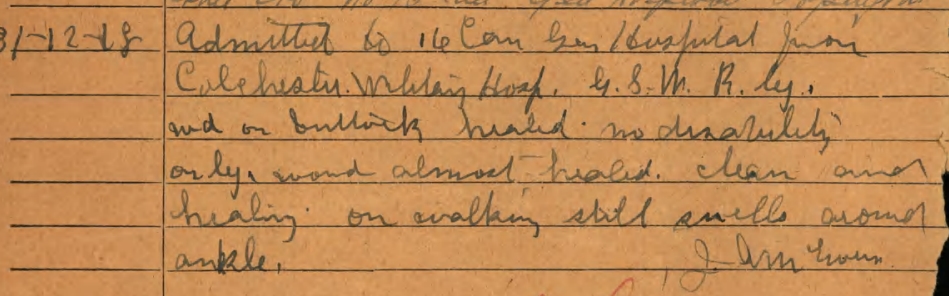 31-12-18 Admitted to 16 Can Gen Hospital from
Colchester Military Hosp. G.S.W. R. leg.
wd on buttock healed no disability
only. wound almost healed. clean and
healing on walking still swells around
ankle.